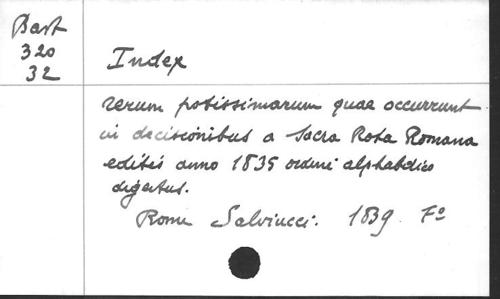 Bart
320
32
Index
rerum potissimarum quae occurrunt
in decisionibus a Sacra Rota Romana
editis anno 1835 ordine alphabetico
digestus.
Rome Salviucci. 1839. Fº